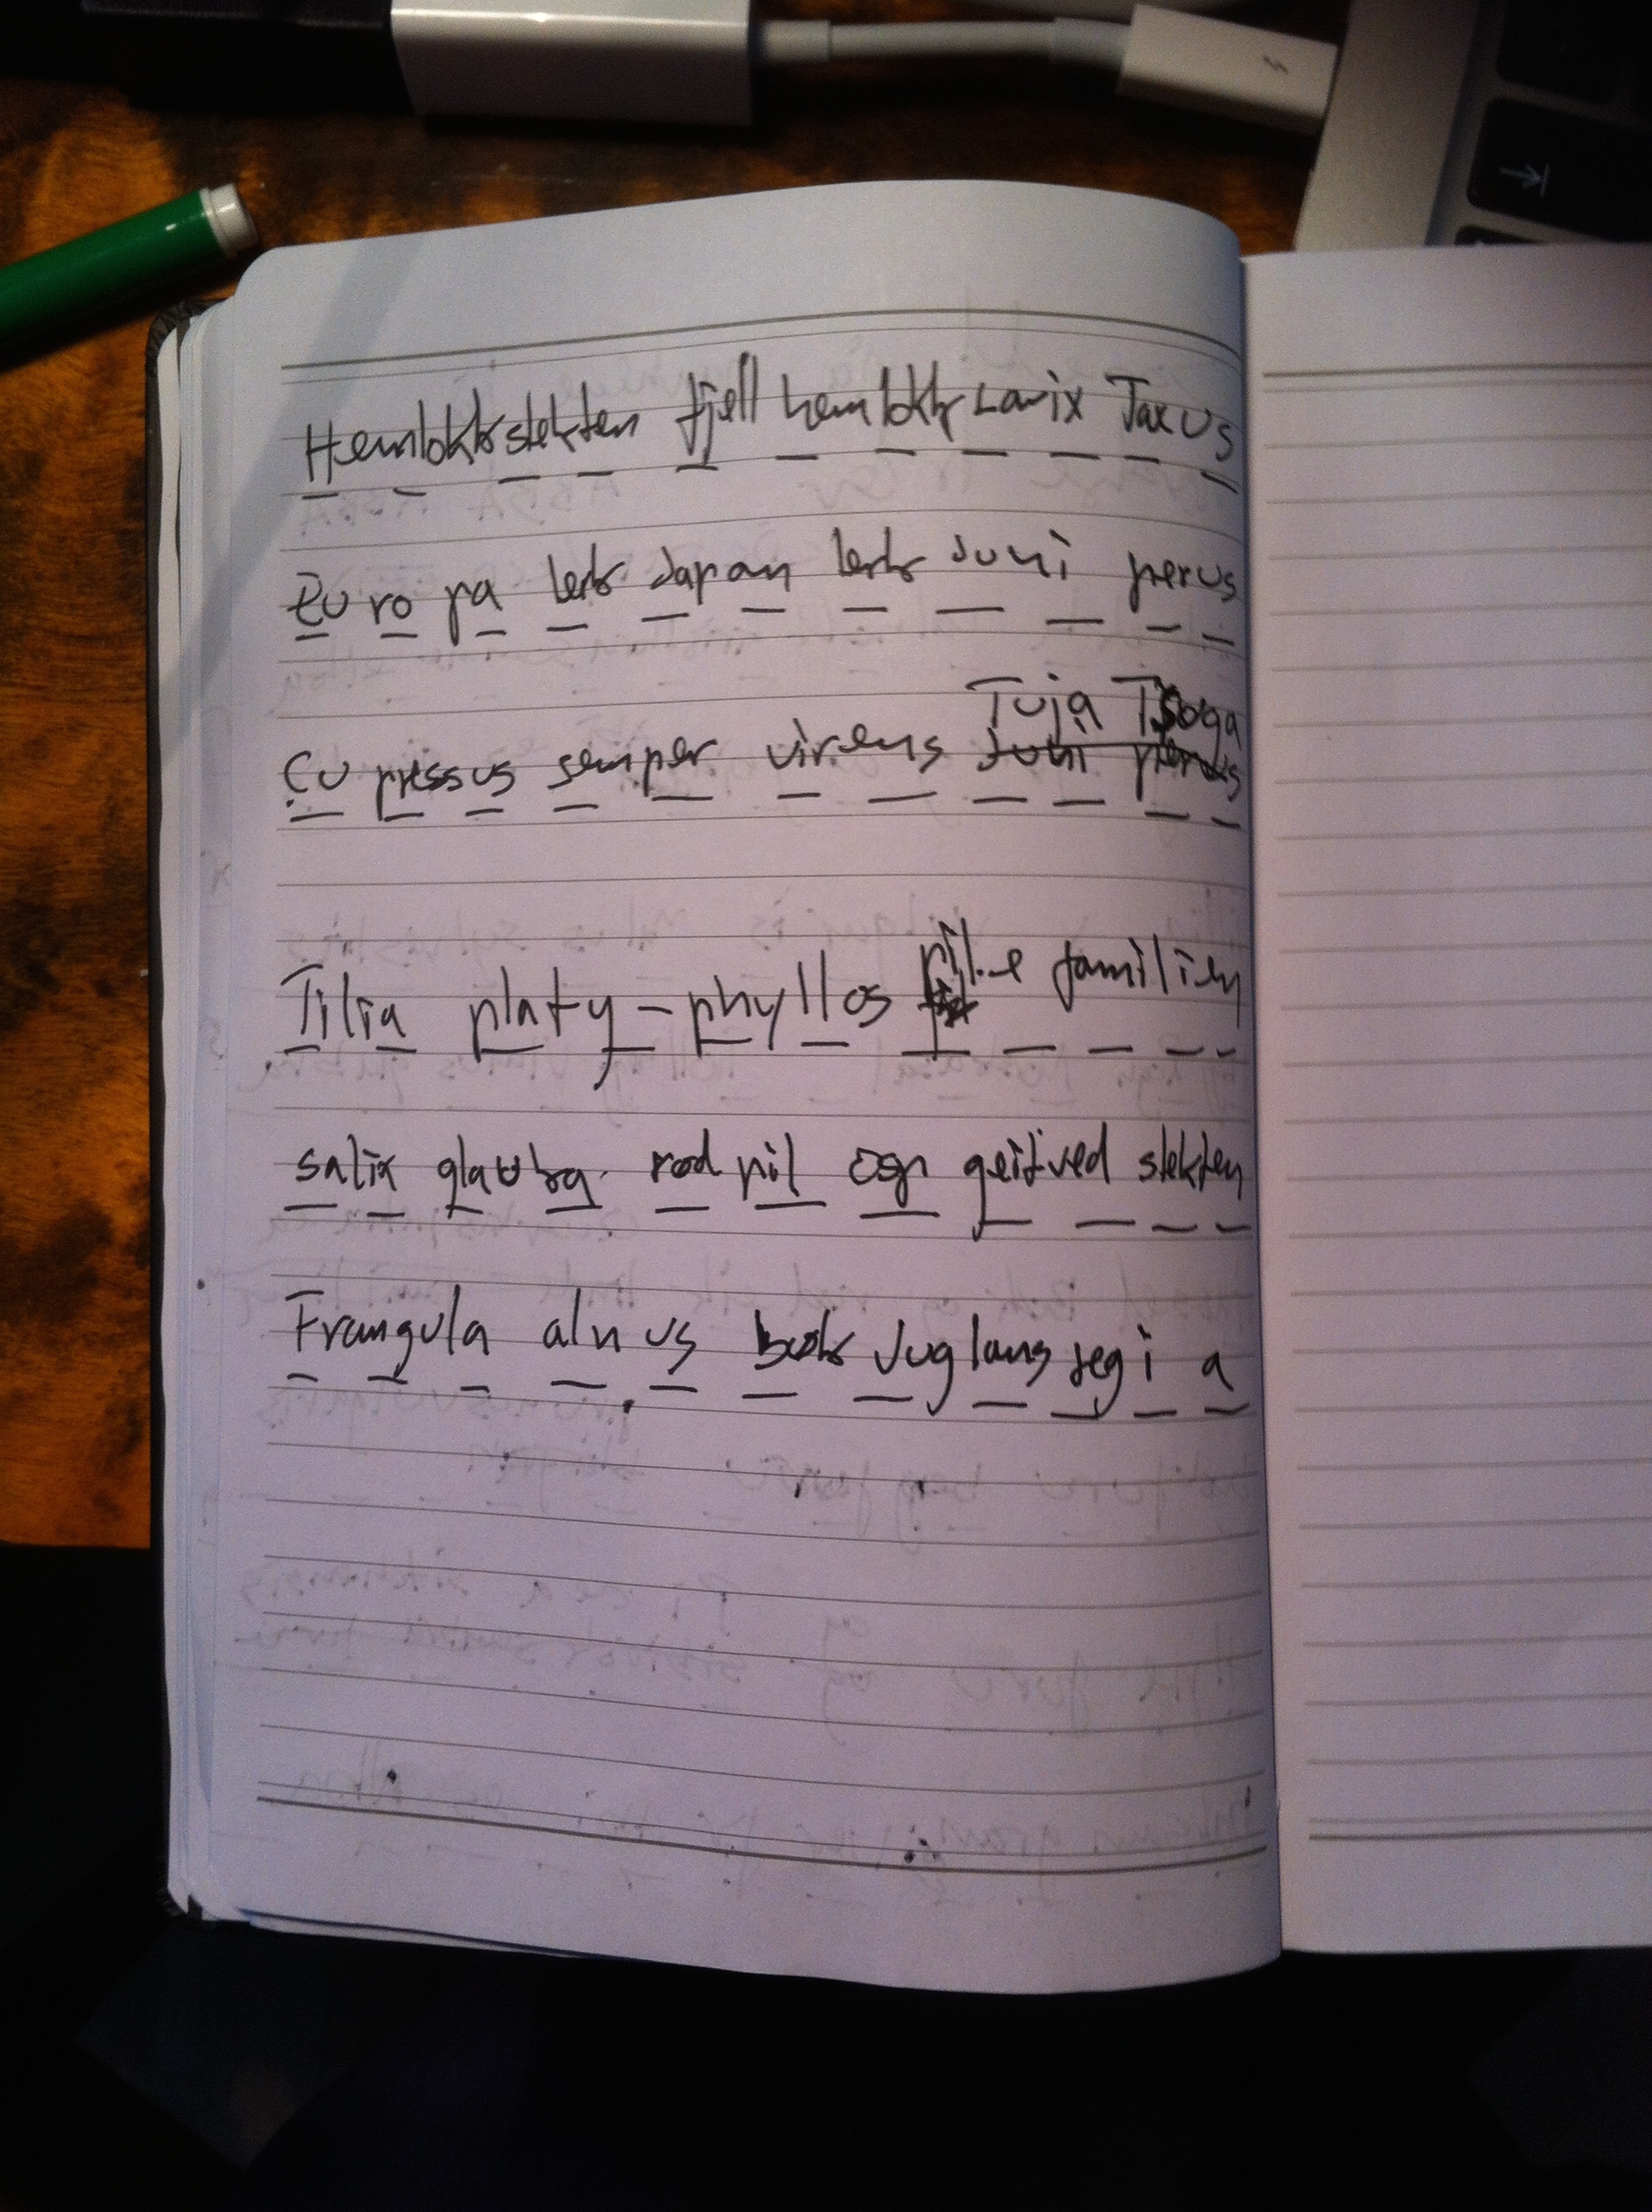 Hemlokkslekten fjell hemlokk Larix Taxus
Eu ro pa lerk Japan lerk Juni perus
Tuja Tsuga
Cu pressus semper virens Juni perus
Tilia platy - phyllos pile familien
salix glauka rød pil og geitved slekten
Frangula aln us bøk Juglans regi a